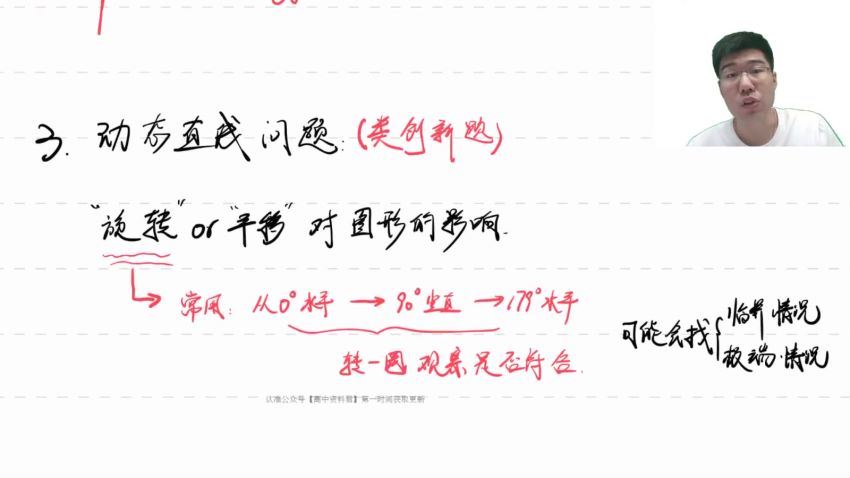 3. 动态直线问题:(类创新题)
“旋转” or “平移” 对图形的影响.
常风: 从0°水平 → 90°竖直 → 179°水平
可能会找{临界情况
极端情况
转一圈 观察是否符合.
认准公众号【高中资料君】第一时间获取更新